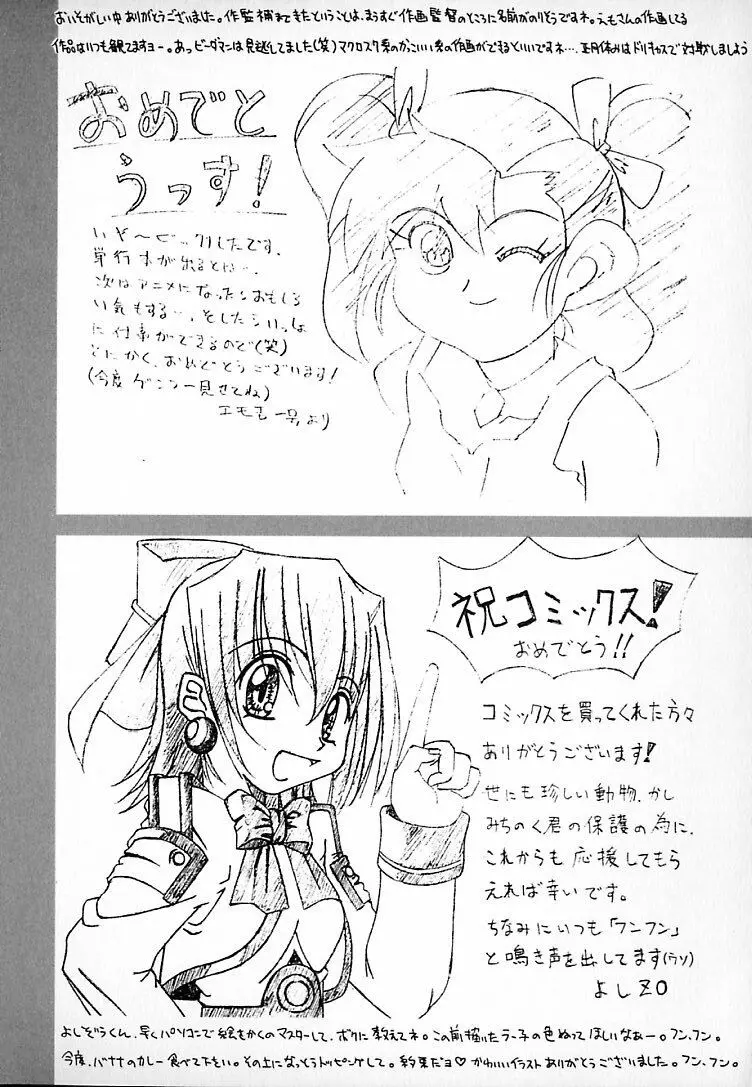 おいそがしい中ありがとうございました。作監補まできたということは、まうすぐ作画監督のところに名前がのりそうですネ。えもさんの作画してる
作品はいつも観てますヨー。あっビーダマンは見逃してました(笑)マクロスク系のかっこいい系の作画ができるといいですネ…。正月休みはドリキャスで対戦しましよう
おめでと
うっす!
いや〜ビックリしたです、
単行本が出るとは…、
次はアニメになったらおもしろ
い気もする…、そしたらいっしょ
に仕事ができるので(笑)
とにかく、おめでとうございます!
(今度ゲンコー見せてね)
エモ 一号より
祝コミックス!
おめでとう!!
コミックスを買ってくれた方々
ありがとうございます!
世にも珍しい動物、かし
みちのく君の保護の為に、
これからも応援してもら
えれば幸いです。
ちなみにいつも「フンフン」
と鳴き声を出してます(ウソ)
よしZO
よしぞうくん、早くパソコンで絵をかくのマスターして、ボクに教えてネ。この前描いたラー子の色ぬってほしいなぁー。フン、フン。
今度、バナナのカレー食べて下さい。その上になっとうトッピングして。約束だヨ♡かわいいイラストありがとうございました。フン、フン。